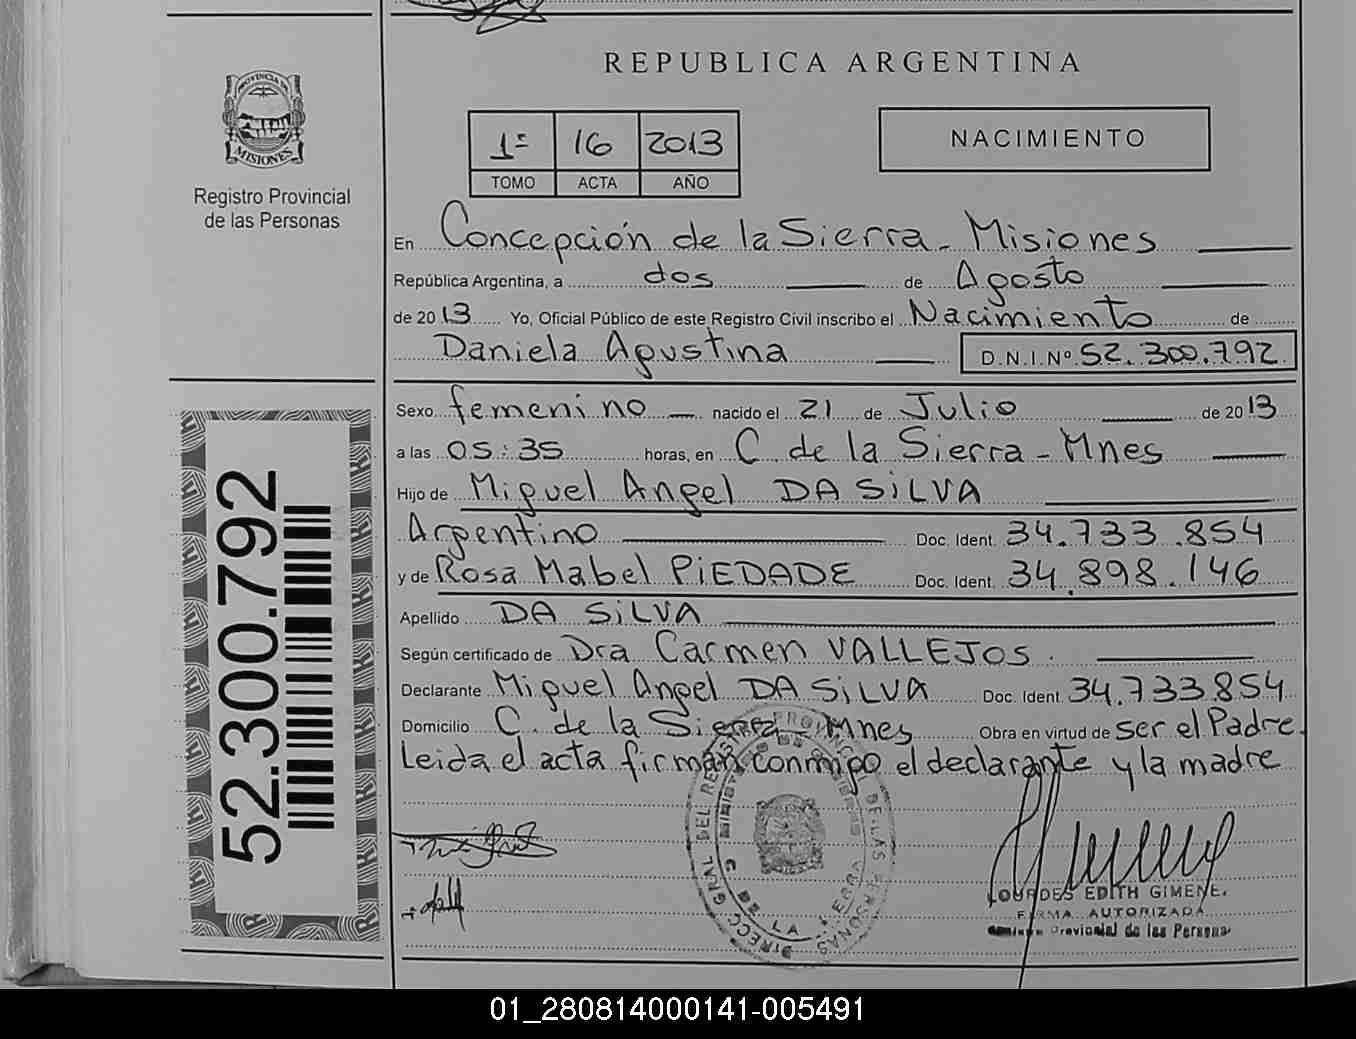 REPUBLICA ARGENTINA
PROVINCIA DE
MISIONES
Registro Provincial
de las Personas
1º 16 2013
TOMO ACTA AÑO
NACIMIENTO
En Concepción de la Sierra - Misiones
República Argentina, a dos de Agosto
de 2013 Yo, Oficial Público de este Registro Civil inscribo el Nacimiento de
Daniela Agustina D.N.I.Nº 52.300.792
Sexo femenino nacido el 21 de Julio de 2013
a las 05:35 horas, en C. de la Sierra - Mnes
Hijo de Miguel Angel DA SiLVA
Argentino Doc. Ident. 34.733.854
y de Rosa Mabel PiEDADE Doc. Ident. 34.898.146
Apellido DA SiLVA
Según certificado de Dra Carmen VALLEJOS.
Declarante Miguel Angel DA SiLVA Doc. Ident. 34.733854
Domicilio C. de la Sierra - Mnes Obra en virtud de ser el Padre.
Leida el acta firman conmigo el declarante y la madre
52.300.792
DIRECC. GRAL DEL REGISTRO PROVINCIAL DE LAS PERSONAS
C. DE LA SIERRA
LOURDES EDITH GIMENE.
FIRMA AUTORIZADA
Provincial de las Persona
01_280814000141-005491